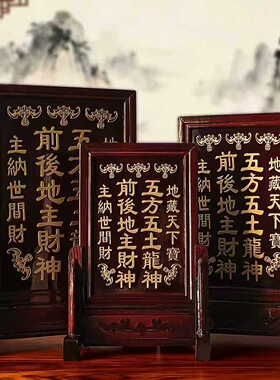 地藏
五方
前後地主財神
主納世間財
地藏天下寶
五方五土龍神
前後地主財神
主納世間財
地藏天下寶
五方五土龍神
前後地主財神
主納世間財